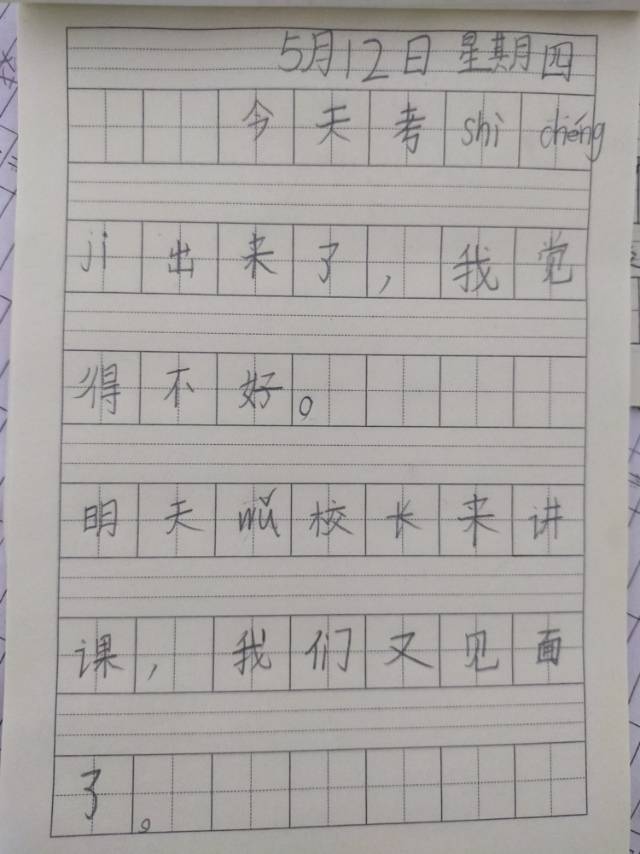 5月12日 星期四
今天考shì chéng
jì出来了，我觉
得不好。
明天wǔ校长来讲
课，我们又见面
了。